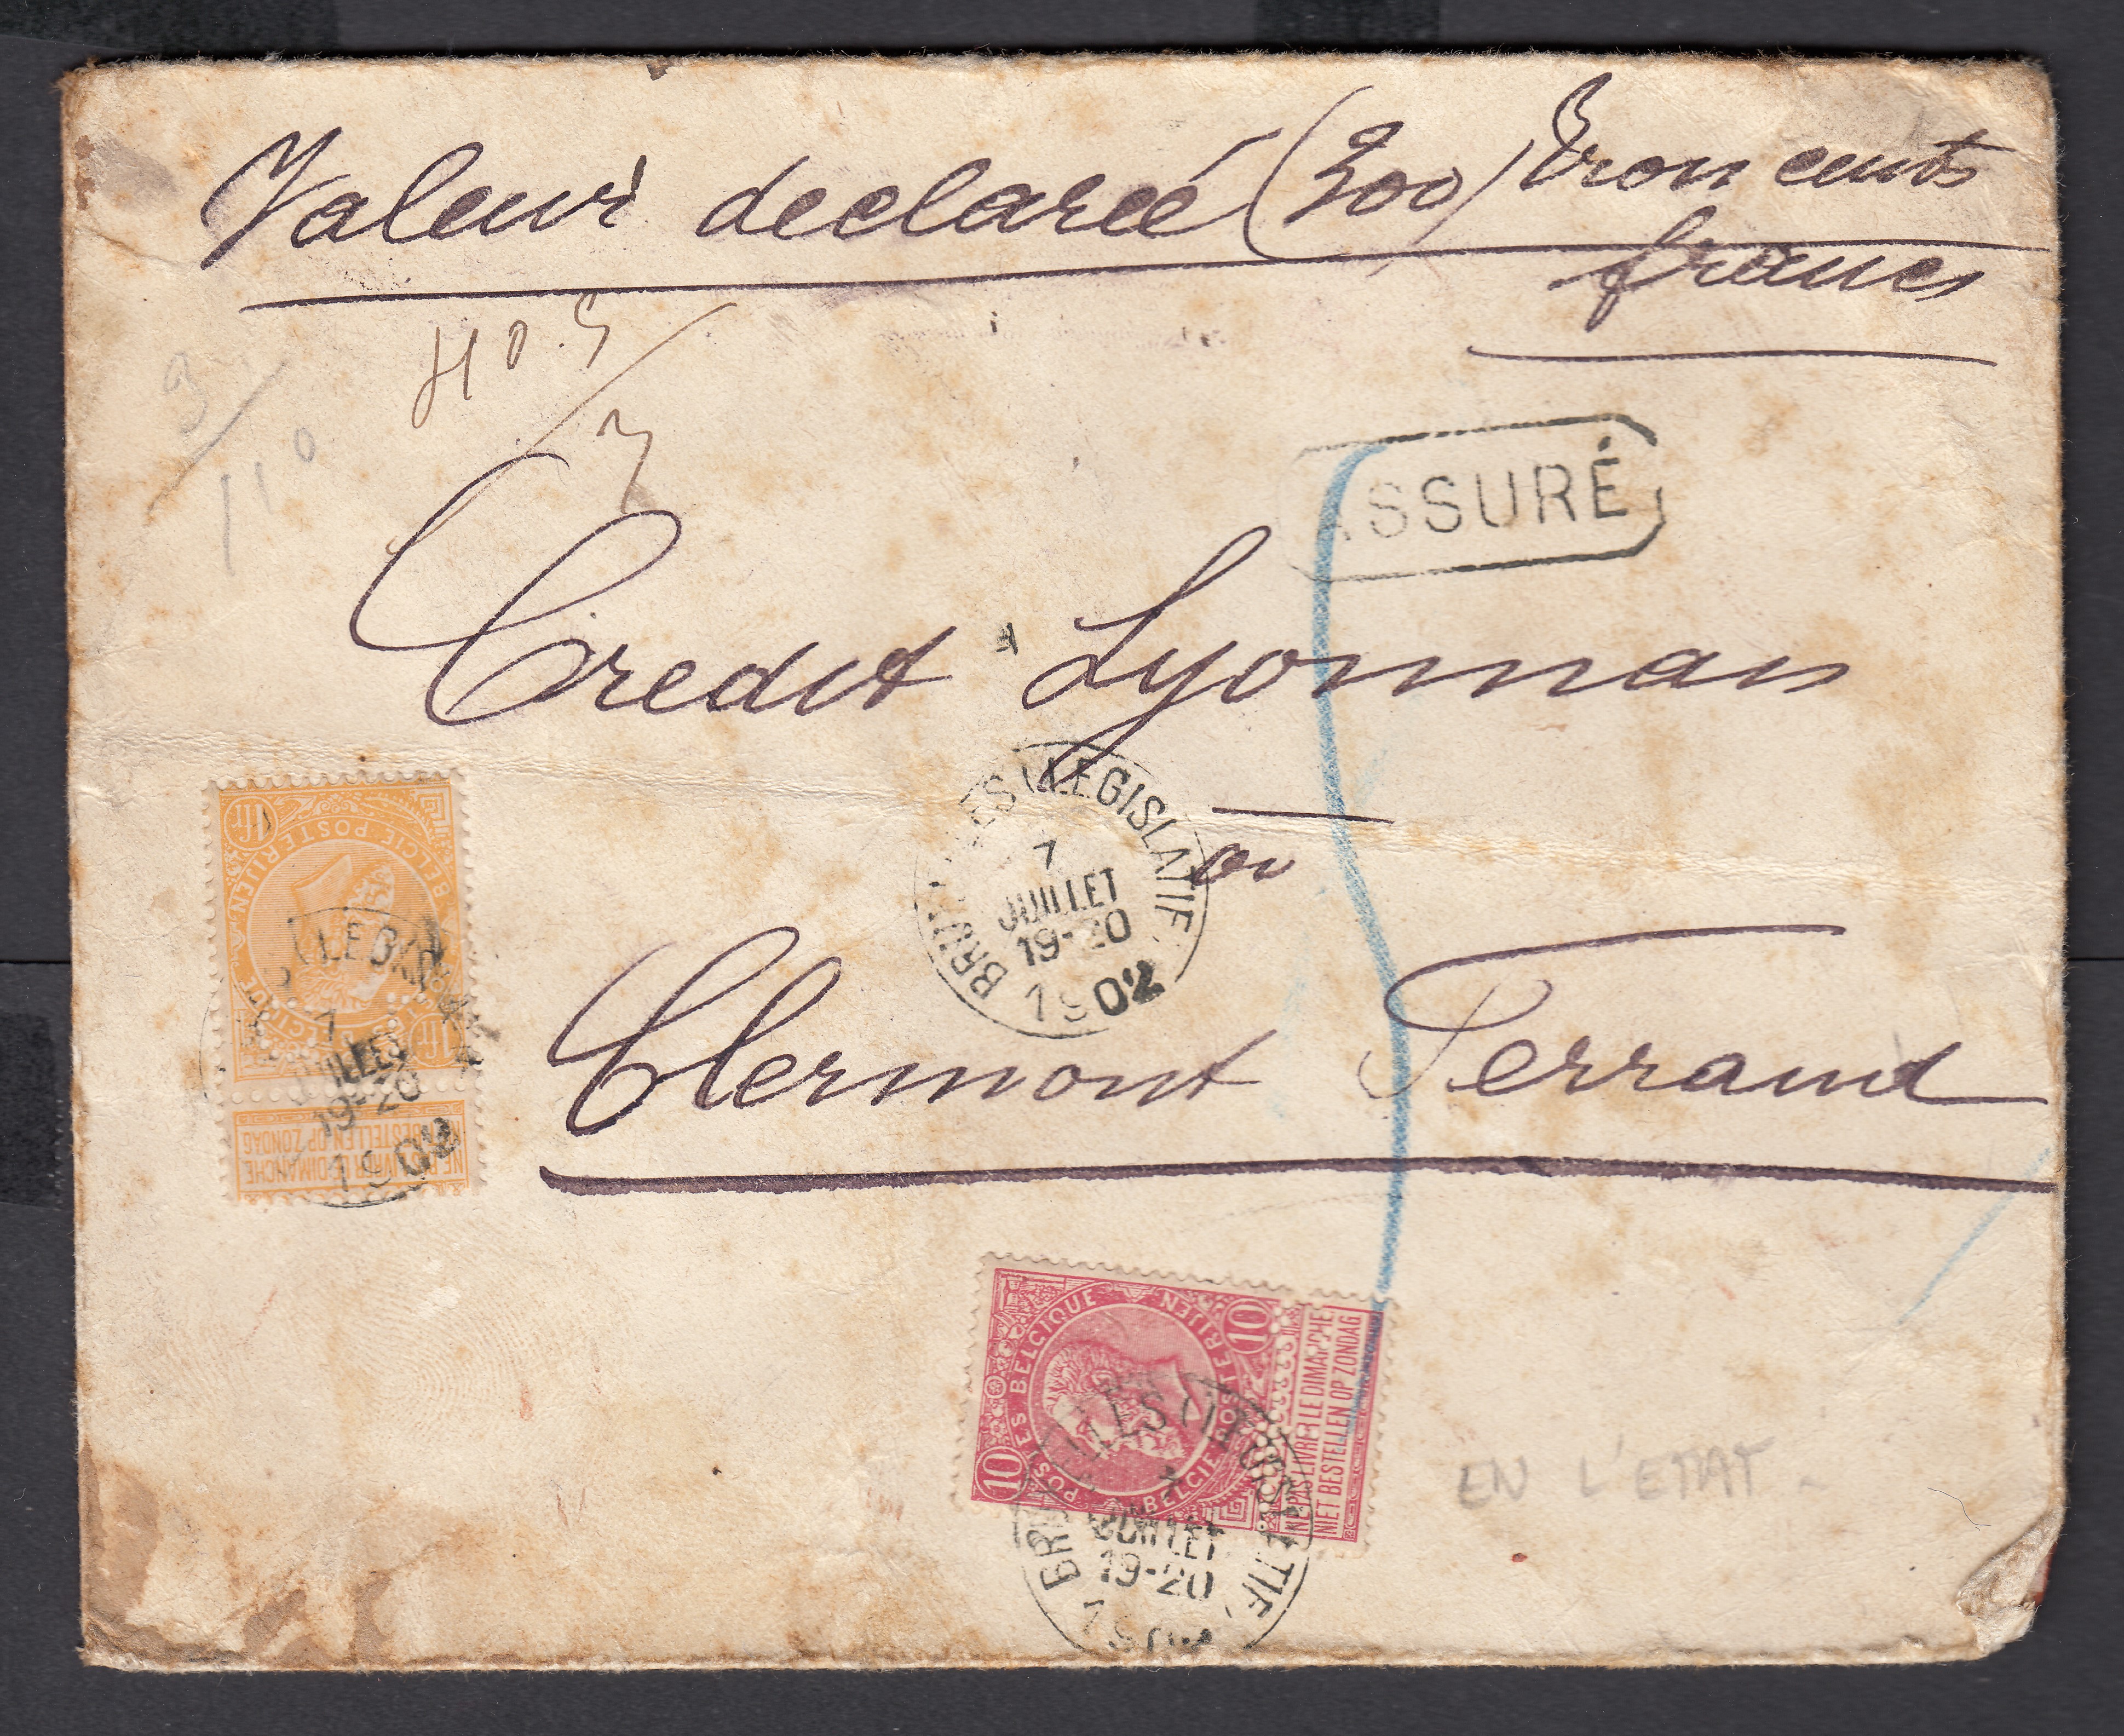 Valeur declareé (300) trois cents
francs
9/110
ASSURÉ
Credit Lyonnais
BRUXELLES (LEGISLATIF)
7
JUILLET
19-20
1902
à
Clermont Ferrand
1fr
BELGIE POSTERIJEN
POSTES BELGIQUE
1fr
NE PAS LIVRER LE DIMANCHE
NIET BESTELLEN OP ZONDAG
(LEGISLATIF)
7
JUILLET
19-20
1902
10
POSTES BELGIQUE
BELGIE POSTERIJEN
10
NE PAS LIVRER LE DIMANCHE
NIET BESTELLEN OP ZONDAG
BRUXELLES (LEGISLATIF)
7
JUILLET
19-20
1902
EN L'ETAT